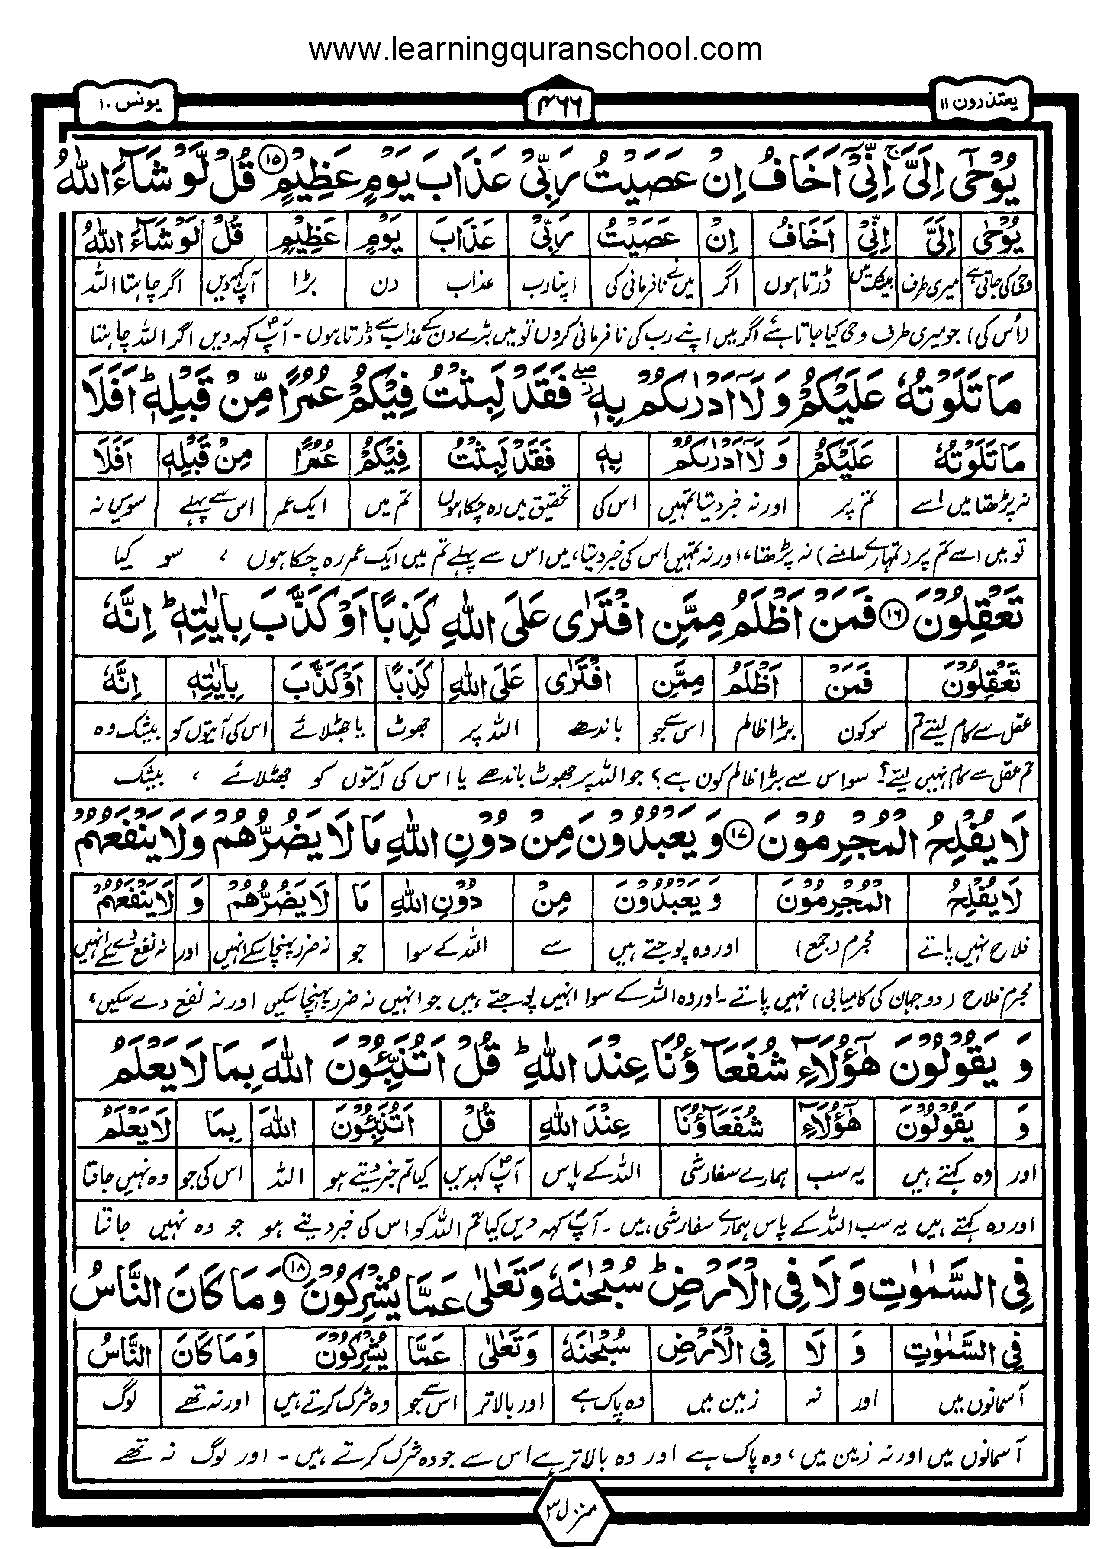 www.learningquranschool.com
یعتذرون ۱۱ ۴۶۶ یونس ۱۰
یُوْحٰۤی اِلَیَّ ۚ اِنِّیْۤ اَخَافُ اِنْ عَصَیْتُ رَبِّیْ عَذَابَ یَوْمٍ عَظِیْمٍ ۱۵ قُلْ لَّوْ شَآءَ اللّٰهُ
یُوْحٰۤی اِلَیَّ اِنِّیْۤ اَخَافُ اِنْ عَصَیْتُ رَبِّیْ عَذَابَ یَوْمٍ عَظِیْمٍ قُلْ لَّوْ شَآءَ اللّٰهُ
وحی کی جاتی ہے میری طرف بیشک میں ڈرتا ہوں اگر میں نے نافرمانی کی اپنا رب عذاب دن بڑا آپ کہہ دیں اگر چاہتا اللہ
(اُس کی) جو میری طرف وحی کیا جاتا ہے اگر میں اپنے رب کی نافرمانی کروں تو میں بڑے دن کے عذاب سے ڈرتا ہوں ۔ آپ کہہ دیں اگر اللہ چاہتا
مَا تَلَوْتُهٗ عَلَیْكُمْ وَ لَاۤ اَدْرٰىكُمْ بِهٖ ۖ فَقَدْ لَبِثْتُ فِیْكُمْ عُمُرًا مِّنْ قَبْلِهٖ ؕ اَفَلَا
مَا تَلَوْتُهٗ عَلَیْكُمْ وَ لَاۤ اَدْرٰىكُمْ بِهٖ فَقَدْ لَبِثْتُ فِیْكُمْ عُمُرًا مِنْ قَبْلِهٖ اَفَلَا
نہ پڑھتا میں اسے تم پر اور نہ خبر دیتا تمہیں اس کی تحقیق میں رہ چکا ہوں تم میں ایک عمر اس سے پہلے سو کیا نہ
تو میں اسے تم پر (تمہارے سامنے) نہ پڑھتا، اور نہ تمہیں اس کی خبر دیتا، میں اس سے پہلے تم میں ایک عمر رہ چکا ہوں ، سو کیا
تَعْقِلُوْنَ ۱۶ فَمَنْ اَظْلَمُ مِمَّنِ افْتَرٰی عَلَی اللّٰهِ كَذِبًا اَوْ كَذَّبَ بِاٰیٰتِهٖ ؕ اِنَّهٗ
تَعْقِلُوْنَ فَمَنْ اَظْلَمُ مِمَّنِ افْتَرٰی عَلَی اللّٰهِ كَذِبًا اَوْ كَذَّبَ بِاٰیٰتِهٖ اِنَّهٗ
عقل سے کام لیتے تم سو کون بڑا ظالم اس سے جو باندھے اللہ پر جھوٹ یا جھٹلائے اس کی آیتوں کو بیشک وہ
تم عقل سے کام نہیں لیتے؟ سو اس سے بڑا ظالم کون ہے؟ جو اللہ پر جھوٹ باندھے یا اس کی آیتوں کو جھٹلائے ، بیشک
لَا یُفْلِحُ الْمُجْرِمُوْنَ ۱۷ وَ یَعْبُدُوْنَ مِنْ دُوْنِ اللّٰهِ مَا لَا یَضُرُّهُمْ وَلَا یَنْفَعُهُمْ
لَا یُفْلِحُ الْمُجْرِمُوْنَ وَ یَعْبُدُوْنَ مِنْ دُوْنِ اللّٰهِ مَا لَا یَضُرُّهُمْ وَ لَا یَنْفَعُهُمْ
فلاح نہیں پاتے مجرم (جمع) اور وہ پوجتے ہیں سے اللہ کے سوا جو نہ ضرر پہنچا سکے انہیں اور نہ نفع دے سکے انہیں
مجرم فلاح (دو جہان کی کامیابی) نہیں پاتے ۔ اور وہ اللہ کے سوا انہیں پوجتے ہیں جو انہیں نہ ضرر پہنچا سکیں اور نہ نفع دے سکیں،
وَ یَقُوْلُوْنَ هٰۤؤُلَآءِ شُفَعَآؤُنَا عِنْدَ اللّٰهِ ؕ قُلْ اَتُنَبِّـُٔوْنَ اللّٰهَ بِمَا لَا یَعْلَمُ
وَ یَقُوْلُوْنَ هٰۤؤُلَآءِ شُفَعَآؤُنَا عِنْدَ اللّٰهِ قُلْ اَتُنَبِّـُٔوْنَ اللّٰهَ بِمَا لَا یَعْلَمُ
اور وہ کہتے ہیں یہ سب ہمارے سفارشی اللہ کے پاس آپ کہہ دیں کیا تم خبر دیتے ہو اللہ اس کی جو وہ نہیں جانتا
اور وہ کہتے ہیں یہ سب اللہ کے پاس ہمارے سفارشی ہیں ۔ آپ کہہ دیں کیا تم اللہ کو اس کی خبر دیتے ہو جو وہ نہیں جانتا
فِی السَّمٰوٰتِ وَ لَا فِی الْاَرْضِ ؕ سُبْحٰنَهٗ وَ تَعٰلٰی عَمَّا یُشْرِكُوْنَ ۱۸ وَ مَا كَانَ النَّاسُ
فِی السَّمٰوٰتِ وَ لَا فِی الْاَرْضِ سُبْحٰنَهٗ وَ تَعٰلٰی عَمَّا یُشْرِكُوْنَ وَ مَا كَانَ النَّاسُ
آسمانوں میں اور نہ زمین میں وہ پاک ہے اور بالاتر اس سے جو وہ شرک کرتے ہیں اور نہ تھے لوگ
آسمانوں میں اور نہ زمین میں، وہ پاک ہے اور وہ بالاتر ہے اس سے جو وہ شرک کرتے ہیں ۔ اور لوگ نہ تھے
منزل ۳